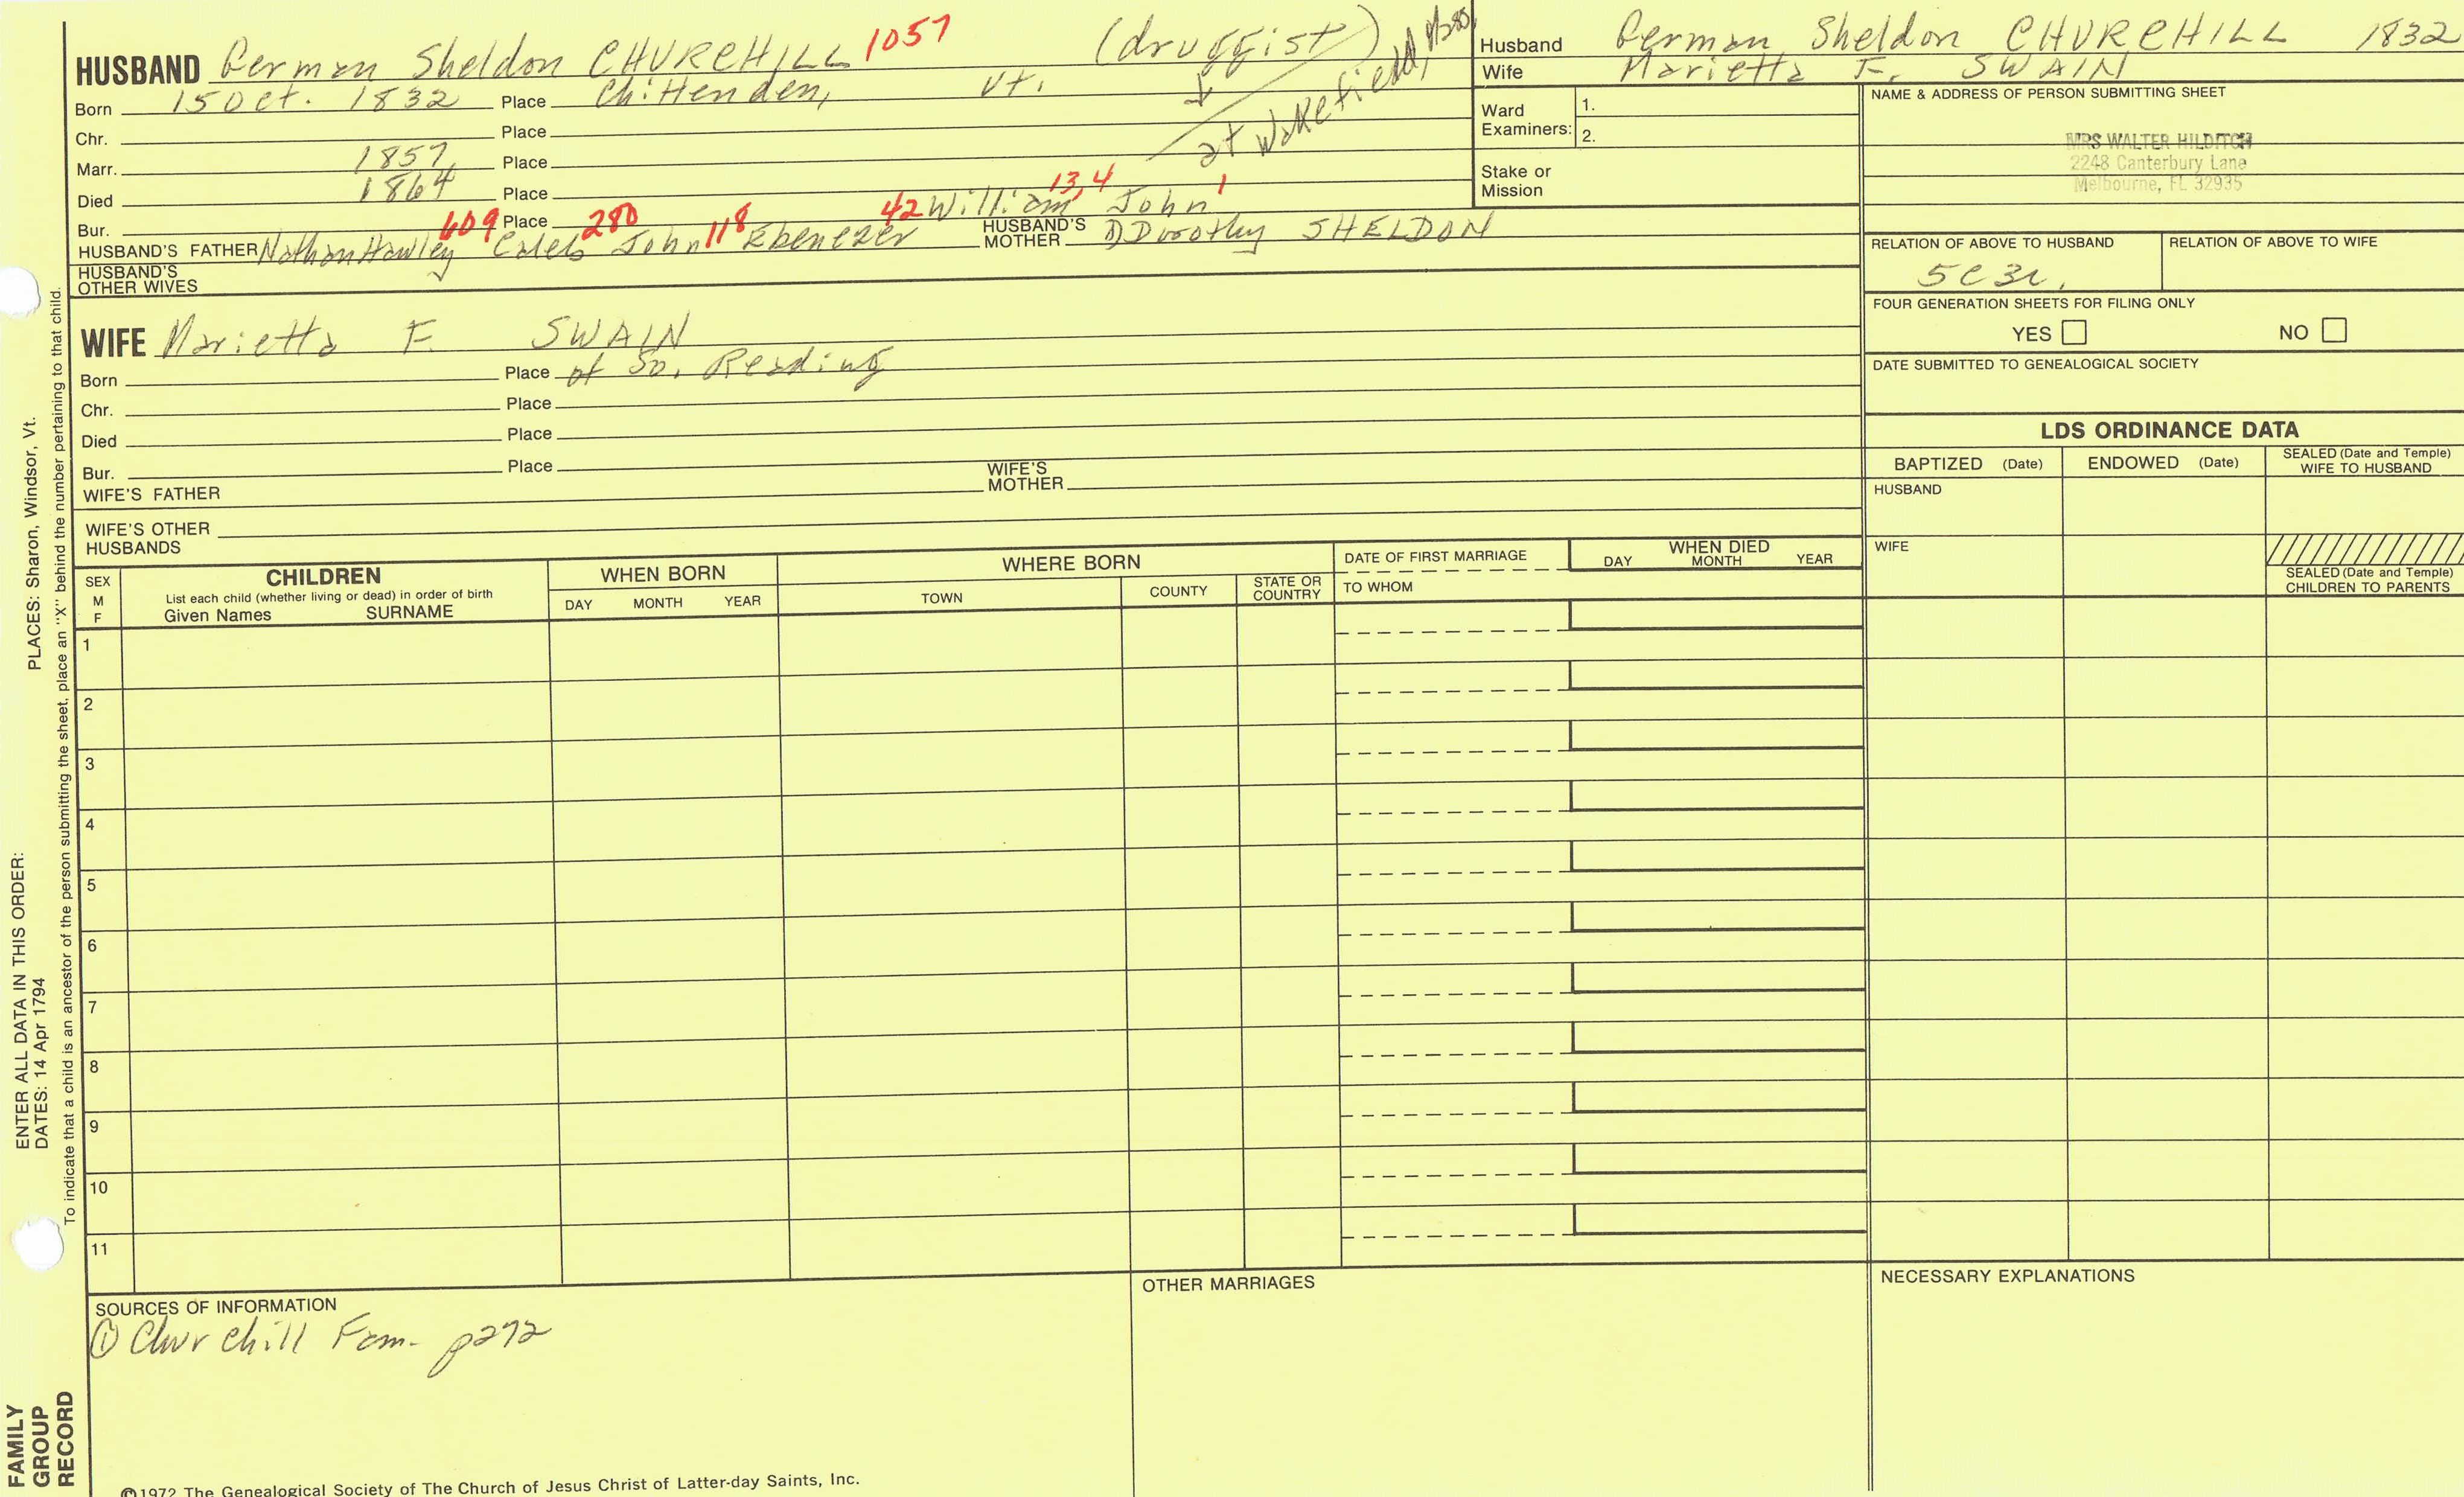 HUSBAND Perman Sheldon CHURCHILL 1057 (druggist)
at Wakefield, Mass
Born 15 Oct. 1832 Place Chittenden, Vt.
Chr. Place
Marr. 1857 Place
Died 1864 Place
Bur. Place
609 280 118 42 William 13,4 John 1
HUSBAND'S FATHER Nathan Hawley Caleb John Ebenezer HUSBAND'S MOTHER Dorothy SHELDON
HUSBAND'S OTHER WIVES
WIFE Marietta F. SWAIN
Born Place of So. Reading
Chr. Place
Died Place
Bur. Place
WIFE'S FATHER WIFE'S MOTHER
WIFE'S OTHER HUSBANDS
Husband Perman Sheldon CHURCHILL 1832
Wife Marietta F. SWAIN
Ward Examiners: 1.
2.
Stake or Mission
NAME & ADDRESS OF PERSON SUBMITTING SHEET
MRS WALTER HILDITCH
2248 Canterbury Lane
Melbourne, FL 32935
RELATION OF ABOVE TO HUSBAND RELATION OF ABOVE TO WIFE
5C3r.
FOUR GENERATION SHEETS FOR FILING ONLY
YES NO
DATE SUBMITTED TO GENEALOGICAL SOCIETY
LDS ORDINANCE DATA
BAPTIZED (Date) ENDOWED (Date) SEALED (Date and Temple) WIFE TO HUSBAND
HUSBAND
WIFE
SEALED (Date and Temple) CHILDREN TO PARENTS
SEX M F
CHILDREN
List each child (whether living or dead) in order of birth
Given Names SURNAME
WHEN BORN
DAY MONTH YEAR
WHERE BORN
TOWN COUNTY STATE OR COUNTRY
DATE OF FIRST MARRIAGE
TO WHOM
WHEN DIED
DAY MONTH YEAR
1
2
3
4
5
6
7
8
9
10
11
SOURCES OF INFORMATION
① Churchill Fam. p272
OTHER MARRIAGES
NECESSARY EXPLANATIONS
©1972 The Genealogical Society of The Church of Jesus Christ of Latter-day Saints, Inc.
FAMILY GROUP RECORD
ENTER ALL DATA IN THIS ORDER:
DATES: 14 Apr 1794
PLACES: Sharon, Windsor, Vt.
To indicate that a child is an ancestor of the person submitting the sheet, place an "X" behind the number pertaining to that child.